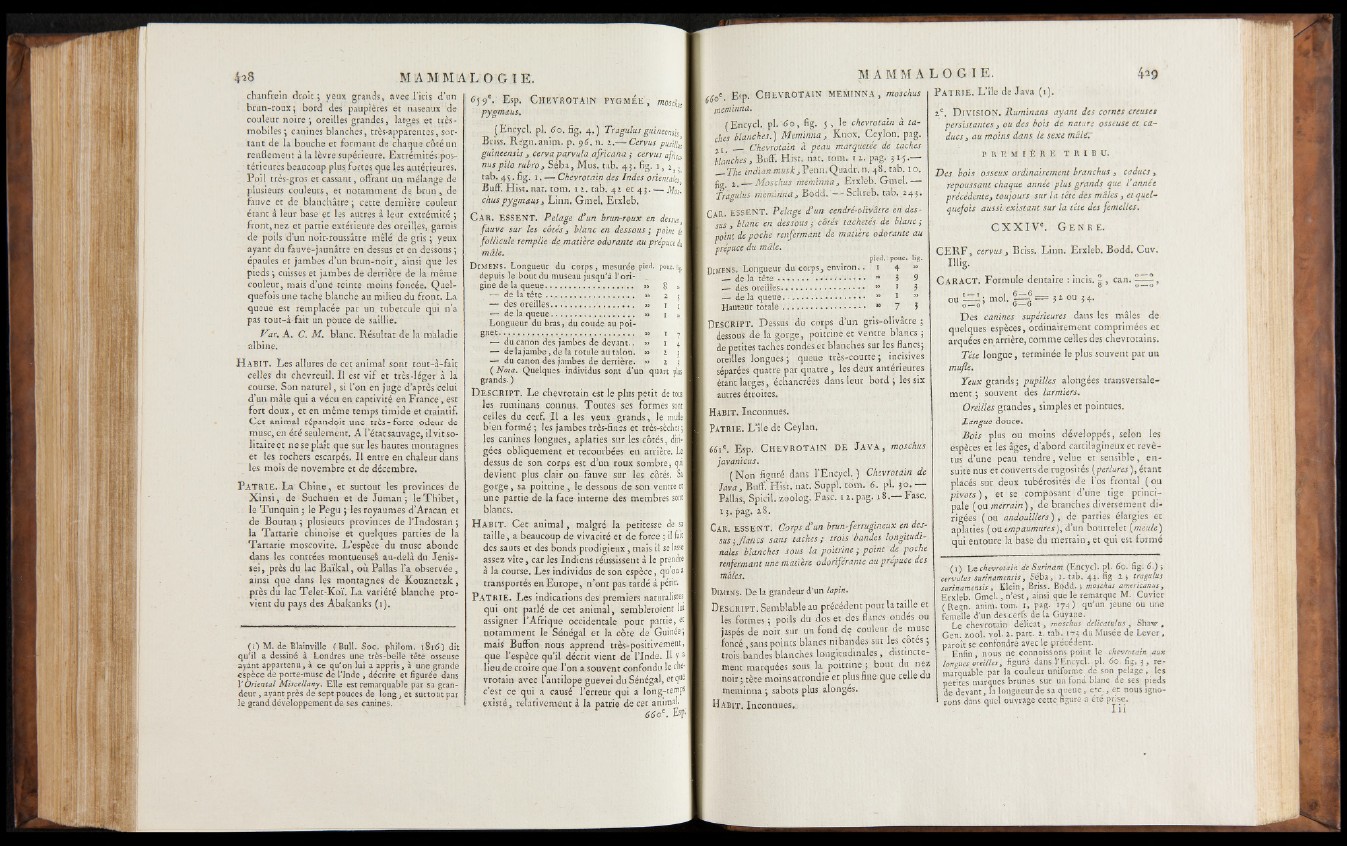 428 MAMMALOGIE.
chanfrein droit ; yeux grands, avec l'iris d'un
brun-roux ; bord des paupières et naseaux de
couleur noire ; oreilles grandes, larges et très-
mobiles ; canines blanches, très-apparentes, sor-
tant de la bouche et formant de chaque côté un
renflement à la lèvre supérieure. Extrémités pos-
térieures beaucoup plus fortes que les antérieures.
Poil très-gros et cassant, offrant un mélange de
plusieurs couleurs, et notamment de brun, de
fauve et de blanchâtre ; cette dernière couleur
étant à leur base et les autres à leur extrémité ;
front, nez et partie extérieure des oreilles, garnis
de poils d'un noir-roussâtre mêlé de gris ; yeux
ayant du fauve-jaunâtre en dessus et en dessous ;
épaules et jambes d'un brun-noir, ainsi que les
pieds ; cuisses et jambes de derrière de la même
couleur, mais d'une teinte moins foncée. Quel-
quefois une tache blanche au milieu du front. La
queue est remplacée par un tubercule qui n'a
pas tout-à-fait un pouce de saillie.
Var. A. C. M. blanc. Résultat de la maladie
albine.
HABIT. Les allures de cet animal sont tout-à-fait
celles du chevreuil. Il est vif et très-léger à la
course. Son naturel, si l'on en juge d'après celui
d'un mâle qui a vécu en captivité en France, est
fort doux, et en même temps timide et craintif.
Cet animal répandoit une très-forte odeur de
musc, en été seulement. A l'état sauvage, il vit so-
litaire et ne se plaît que sur les hautes montagnes
et les rochers escarpés. Il entre en chaleur dans
les mois de novembre et de décembre.
PATRIE. La Chine, et surtout les provinces de
Xinsi, de Suchuen et de Junan ; le Thibet,
le Tunquin ; le Pegu ; les royaumes d'Aracan et
de Boutan ; plusieurs provinces de l'Indostan ;
la Tartarie chinoise et quelques parties de la
Tartarie moscovite. L'espèce du musc abonde
dans les contrées montueuses au-delà du Jenis-
sei, près du lac Baïkal, où Pallas l'a observée,
ainsi que dans les montagnes de Kouznetzk,
près du lac Telet-Koï. La variété blanche pro-
vient du pays des Abakanks (1).
(1) M. de Blainville (Bull. Soc. philom. 1816) dit
qu'il a dessiné à Londres une très-belle tête osseuse
ayant appartenu, à ce qu'on lui a appris, à une grande
espèce de porte-musc de l'Inde, décrite et figurée dans
l'Oriental Miscellany. Elle est remarquable par sa gran-
deur, ayant près de sept pouces de long, et surtout par
le grand développement de ses canines.
659e. Esp. CHEVROTAIN PYGMÉE, moschus
pygmæus.
(Encycl. pl. 60. fig. 4.) Tragulus guineensis,
Briss. Règn. anim. p. 96. n. 2.— Cervus pusillus
guineensis, cerva parvula africana ; cervus africa-
nus pilo rubro, Séba, Mus. tab. 43. fig. 1, 2, 3,
tab. 45. fig. 1. — Chevrotain des Indes orientales,
Buff. Hist. nat. tom. 12. tab. 42 et 43. — Mos-
chus pygmæus, Linn. Gmel. Erxleb.
CAR. ESSENT. Pelage d'un brun-roux en dessus,
fauve sur les côtés, blanc en dessous ; point de
follicule remplie de matière odorante au prépuce du
mâle.
DIMENS. Longueur du corps, mesurée pied. pouc. lig.
depuis le bout du museau jusqu'à l'ori-
gine de la queue.................. » 8 »
— de la tête.................. » 2 3
— des oreilles.................. » 1 3
— de la queue.................. » 1 »
Longueur du bras, du coude au poi-
gnet.................. » 1 7
— du canon des jambes de devant.. » 1 4
— de la jambe, de la rotule au talon. » 2 3
— du canon des jambes de derrière. » 2 3
(Nota. Quelques individus sont d'un quart plus
grands.)
DESCRIPT. Le chevrotain est le plus petit de tous
les ruminans connus. Toutes ses formes sont
celles du cerf. Il a les yeux grands, le mufle
bien formé ; les jambes très-fines et très-sèches ;
les canines longues, aplaties sur les côtés, diri-
gées obliquement et recourbées en arrière. Le
dessus de son corps est d'un roux sombre, qui
devient plus clair ou fauve sur les côtés. Sa
gorge, sa poitrine, le dessous de son ventre et
une partie de la face interne des membres sont
blancs.
HABIT. Cet animal, malgré la petitesse de sa
taille, a beaucoup de vivacité et de force ; il fait
des sauts et des bonds prodigieux, mais il se lasse
assez vîte, car les Indiens réussissent à le prendre
à la course. Les individus de son espèce, qu'on a
transportés en Europe, n'ont pas tardé à périr.
PATRIE. Les indications des premiers naturalistes
qui ont parlé de cet animal, sembleroient lui
assigner l'Afrique occidentale pour patrie, et
notamment le Sénégal et la côte de Guinée ;
mais Buffon nous apprend très-positivement,
que l'espèce qu'il décrit vient de l'Inde. Il y a
lieu de croire que l'on a souvent confondu le che-
vrotain avec l'antilope guevei du Sénégal, et que
c'est ce qui a causé l'erreur qui a long-temps
existé, relativement à la patrie de cet animal.
660e. Esp.
MAMMALOGIE. 429
660e. Esp. CHEVROTAIN MEMINNA, moschus
meminna.
(Encycl. pl. 60, fig. 5, le chevrotain à ta-
ches blanches.) Meminna, Knox, Ceylon. pag.
21. — Chevrotain à peau marquetée de taches
blanches, Buff. Hist. nat. tom. 12. pag. 315.—
— The indian musk, Penn. Quadr. n. 48. tab. 10.
fig. 2.— Moschus meminna, Erxleb. Gmel. —
Tragulus meminna, Bodd. — Schreb. tab. 243.
CAR. ESSENT. Pelage d'un cendré-olivâtre en des-
sus, blanc en dessous ; côtés tachetés de blanc ;
point de poche renfermant de matière odorante au
prépuce du mâle.
pied. pouc. lig.
DIMENS. Longueur du corps, environ.. 1 4 »
— de la tête.................. » 3 9
— des oreilles.................. » 1 3
— de la queue.................. » 1 »
Hauteur totale.................. » 7 3
DESCRIPT. Dessus du corps d'un gris-olivâtre ;
dessous de la gorge, poitrine et ventre blancs ;
de petites taches rondes et blanches sur les flancs ;
oreilles longues ; queue très-courte ; incisives
séparées quatre par quatre, les deux antérieures
étant larges, échancrées dans leur bord ; les six
autres étroites.
HABIT. Inconnues.
PATRIE. L'île de Ceylan.
661e. Esp. CHEVROTAIN DE JAVA, moschus
javanicus.
(Non figuré dans l'Encycl.) Chevrotain de
Java, Buff. Hist. nat. Suppl. tom. 6. pl. 30. —
Pallas, Spicil. zoolog. Fasc. 12. pag. 18.— Fasc.
13. pag. 28.
CAR. ESSENT. Corps d'un brun-ferrugineux en des-
sus ; flancs sans taches ; trois bandes longitudi-
nales blanches sous la poitrine ; point de poche
renfermant une matière odoriférante au prépuce des
mâles.
DIMENS. De la grandeur d'un lapin.
DESCRIPT. Semblable au précédent pour la taille et
les formes ; poils du dos et des flancs ondés ou
jaspés de noir sur un fond de couleur de musc
foncé, sans points blancs ni bandes sur les côtés ;
trois bandes blanches longitudinales, distincte-
ment marquées sous la poitrine ; bout du nez
noir ; tête moins arrondie et plus fine que celle du
meminna ; sabots plus alongés.
HABIT. Inconnues.
PATRIE. L'île de Java (1).
2e. DIVISION. Ruminans ayant des cornes creuses
persistantes, ou des bois de nature osseuse et ca-
ducs, au moins dans le sexe mâle.
PREMIÈRE TRIBU.
Des bois osseux ordinairement branchus, caducs,
repoussant chaque année plus grands que l'année
précédente, toujours sur la tête des mâles, et quel-
quefois aussi existant sur la tête des femelles.
CXXIVe. GENRE.
CERF, cervus, Briss. Linn. Erxleb. Bodd. Cuv.
Illig.
CARACT. Formule dentaire : incis. 0/8, can. 0—0/0—0,
ou 1—1/0—0 ; mol. 6—6/6—6 == 32 ou 34.
Des canines supérieures dans les mâles de
quelques espèces, ordinairement comprimées et
arquées en arrière, comme celles des chevrotains.
Tête longue, terminée le plus souvent par un
mufle.
Yeux grands ; pupilles alongées transversale-
ment ; souvent des larmiers.
Oreilles grandes, simples et pointues.
Langue douce.
Bois plus ou moins développés, selon les
espèces et les âges, d'abord cartilagineux et revê-
tus d'une peau tendre, velue et sensible, en-
suite nus et couverts de rugosités (perlures), étant
placés sur deux tubérosités de l'os frontal (ou
pivots), et se composant d'une tige princi-
pale (ou merrain), de branches diversement di-
rigées (ou andouillers), de parties élargies et
aplaties (ou empaumures), d'un bourrelet (meule)
qui entoure la base du merrain, et qui est formé
(1) Le chevrotain de Surinam (Encycl. pl. 60. fig. 6.) ;
cervulus surinamensis, Séba, 1. tab. 44. fig. 2 ; tragulus
surinamensis, Klein, Briss. Bodd. ; moschus americanus,
Erxleb. Gmel., n'est, ainsi que le remarque M. Cuvier
(Regn. anim. tom. 1, pag. 174) qu'un jeune ou une
femelle d'un des cerfs de la Guyane.
Le chevrotain délicat, moschus delicatulus, Shaw,
Gen. zool. vol. 2. part. 2. tab. 172 du Musée de Lever,
paroît se confondre avec le précédent.
Enfin, nous ne connoissons point le chevrotain aux
longues oreilles, figuré dans l'Encycl. pl. 60. fig. 3, re-
marquable par la couleur uniforme de son pelage, les
petites marques brunes sur un fond blanc de ses pieds
de devant, la longueur de sa queue, etc., et nous igno-
rons dans quel ouvrage cette figure a été prise.
Iii